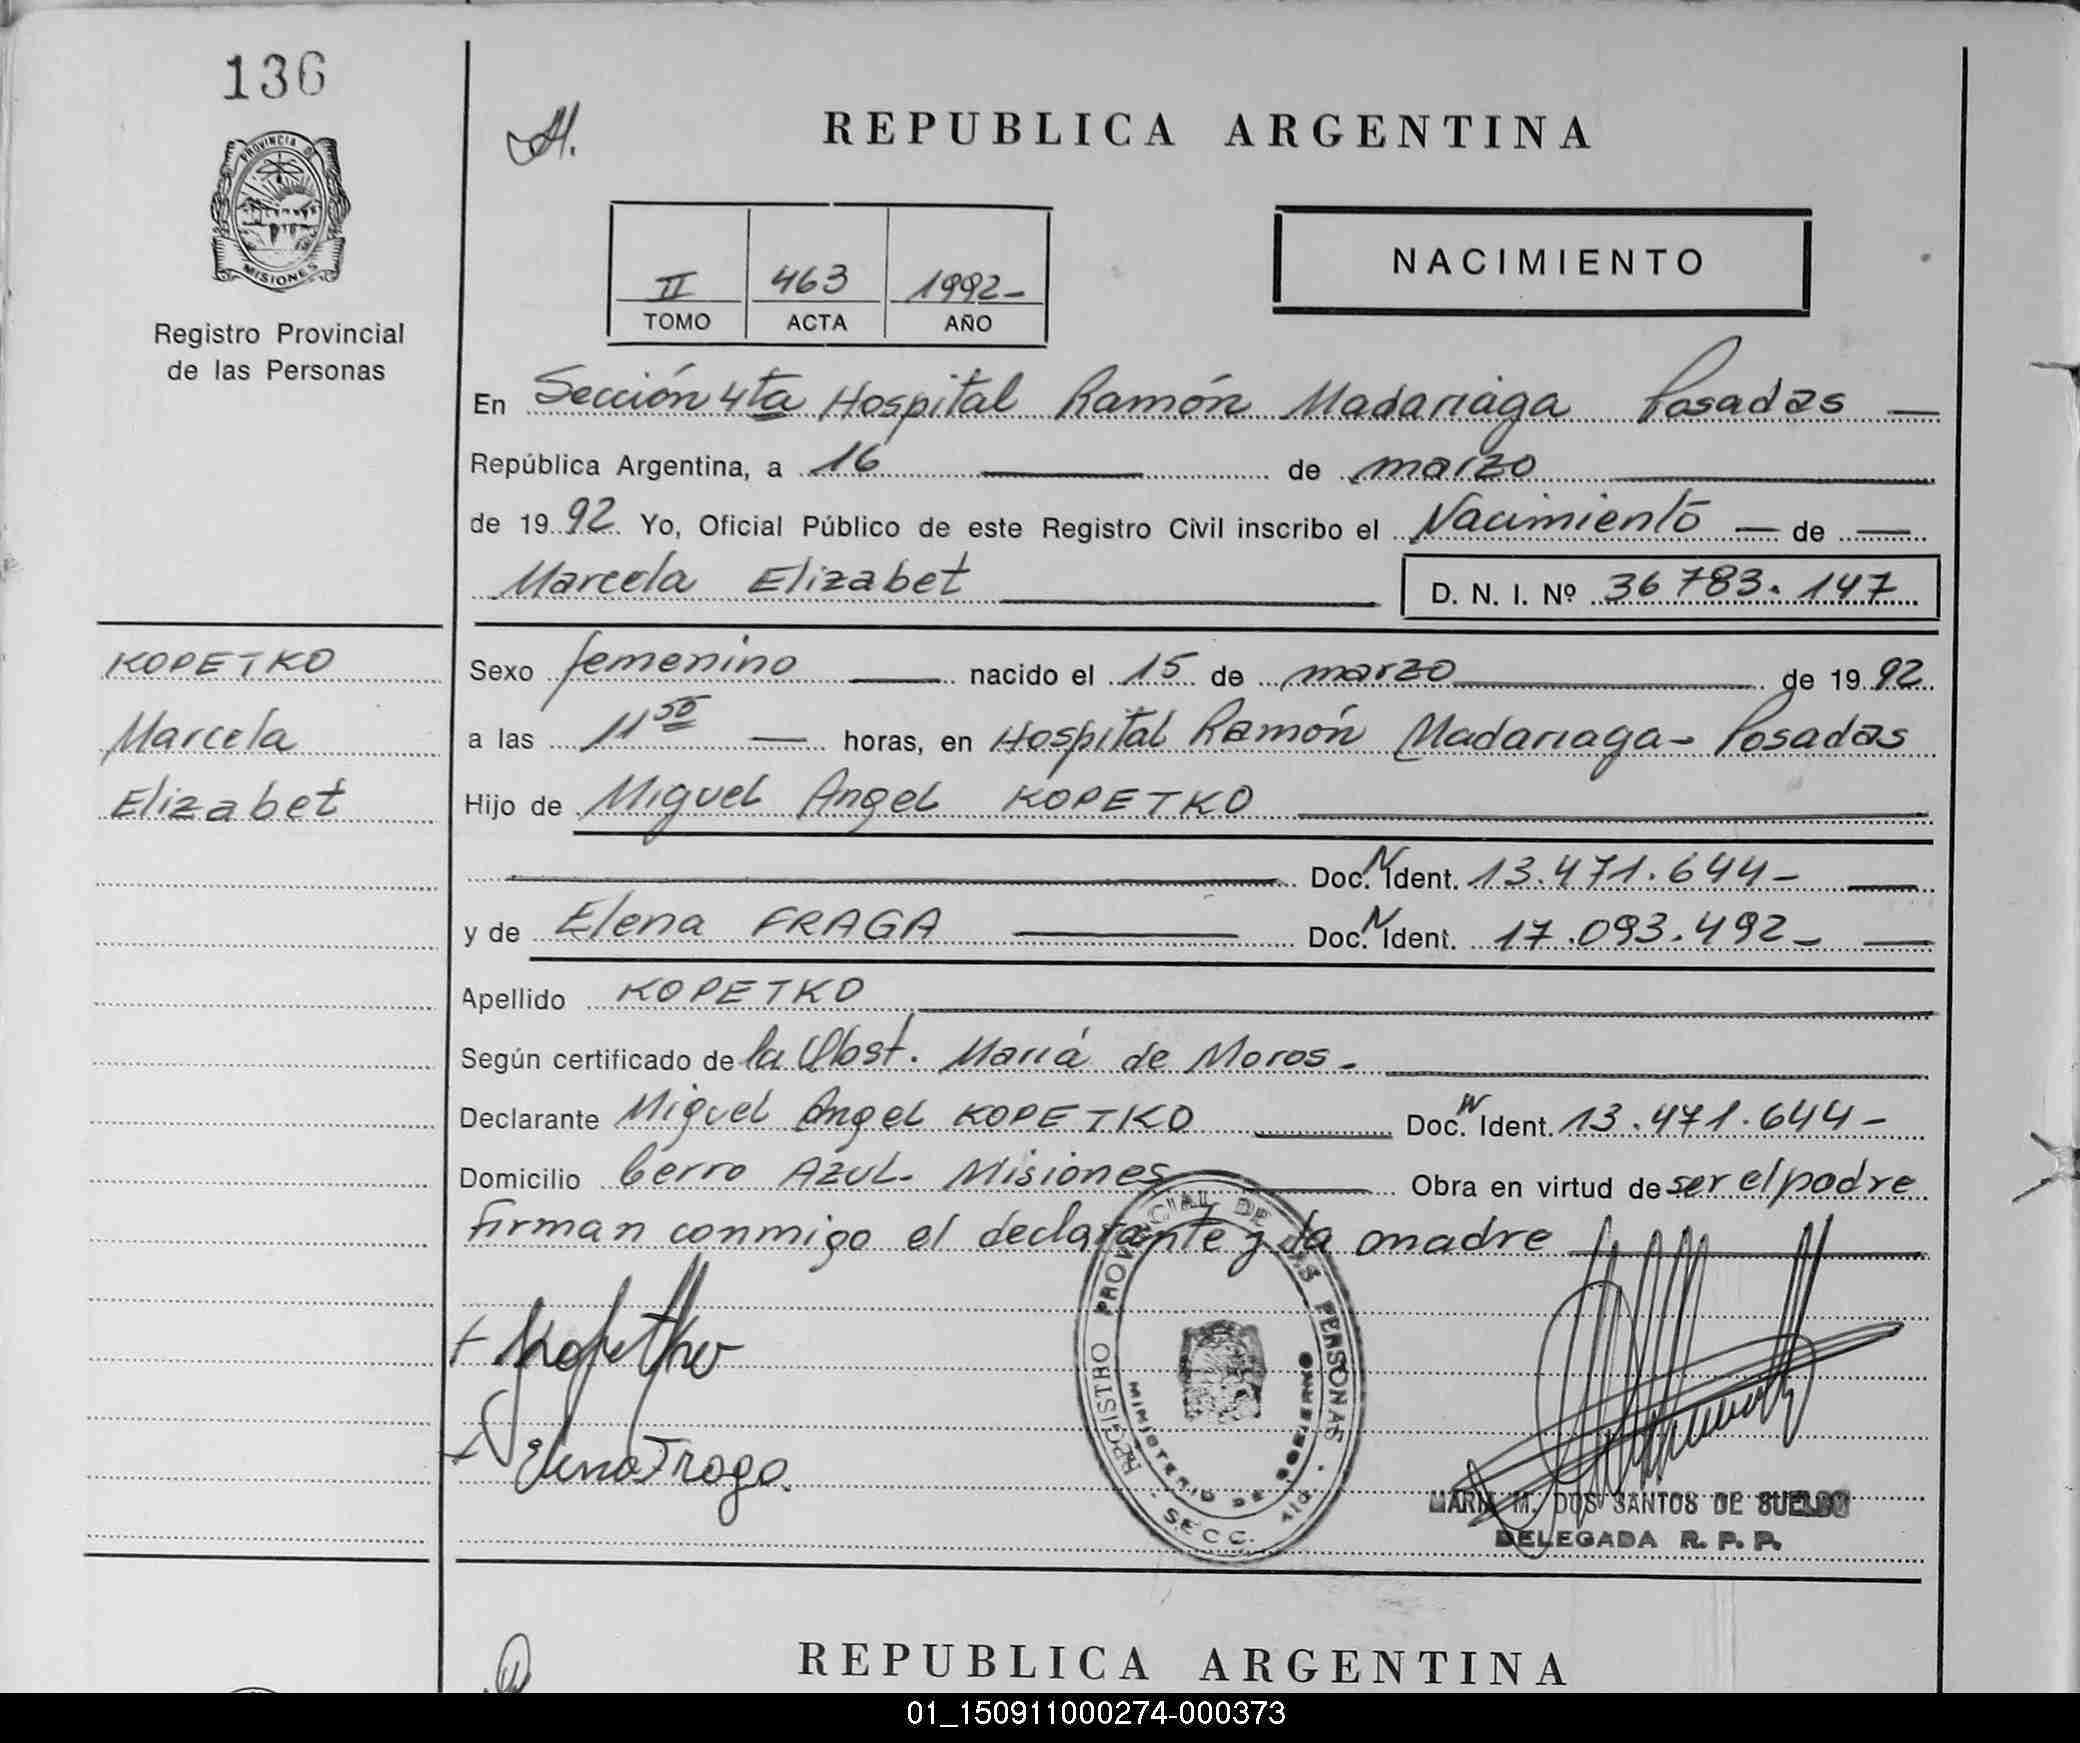 136
PROVINCIA DE
MISIONES
Registro Provincial
de las Personas
REPUBLICA ARGENTINA
II 463 1992-
TOMO ACTA AÑO
NACIMIENTO
En Sección 4ta Hospital Ramón Madariaga Posadas —
República Argentina, a 16 — de marzo
de 19 92 Yo, Oficial Público de este Registro Civil inscribo el Nacimiento — de —
Marcela Elizabet
D. N. I. Nº 36 783. 147
KOPETKO
Marcela
Elizabet
Sexo femenino — nacido el 15 de marzo de 19 92
a las 11 50 — horas, en Hospital Ramón Madariaga - Posadas
Hijo de Miguel Angel KOPETKO
Doc. N Ident. 13.471.644 -
y de Elena FRAGA — Doc. N Ident. 17.093.492 -
Apellido KOPETKO
Según certificado de la Obst. María de Moros -
Declarante Miguel Angel KOPETKO Doc. N Ident. 13.471.644 -
Domicilio Cerro AZUL - Misiones Obra en virtud de ser el padre
firman conmigo el declarante y la madre
Kopetko
Elena Fraga.
REGISTRO PROVINCIAL DE LAS PERSONAS
MINISTERIO DE GOBIERNO
SECC. 4ta
MARIA M. DOS SANTOS DE SUELDO
DELEGADA R. P. P.
REPUBLICA ARGENTINA
01_150911000274-000373